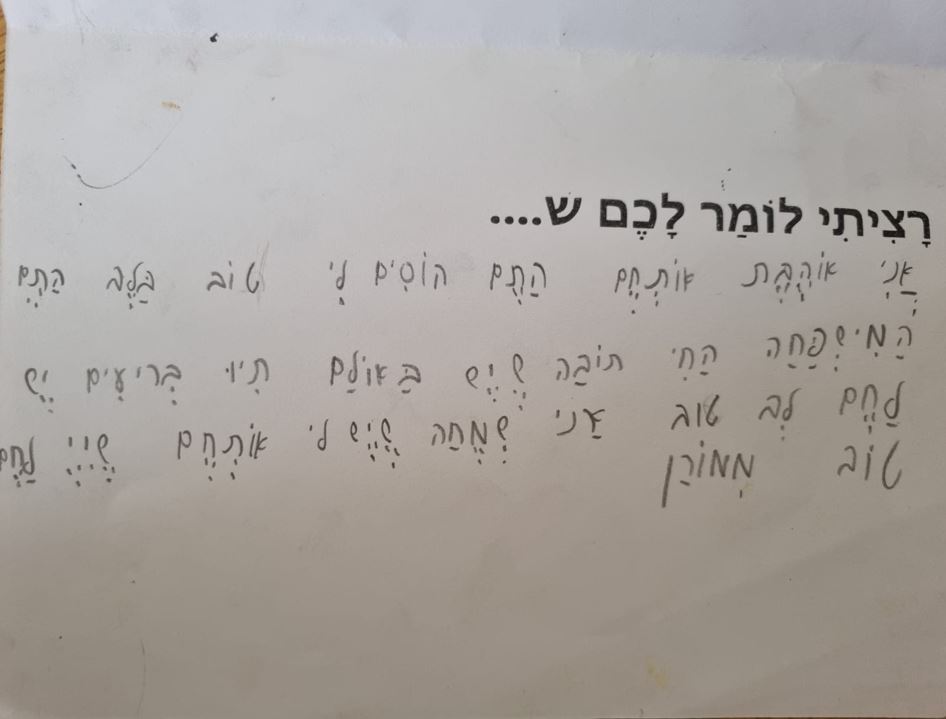 רָצִיתִי לוֹמַר לָכֶם ש....
אֲנִי אוֹהֶבֶת אוֹתְחֶם הַתֶם הוֹסִים לִי טוֹב בַּלֶב הַתֶם
הַמִישְׁפַּחָה הַחִי תוֹבַה שֶׁיֵשׁ בַּאוֹלַם תִיוּ בְּרִיעִים יֵשׁ
לַחֶם לֵב טוֹב אַנִי שְׂמֶחַה שֶׁיֵשׁ לי אוֹתְחֶם שֶׁיִיֶ לַחֶם
טוֹב מִמוֹרַן